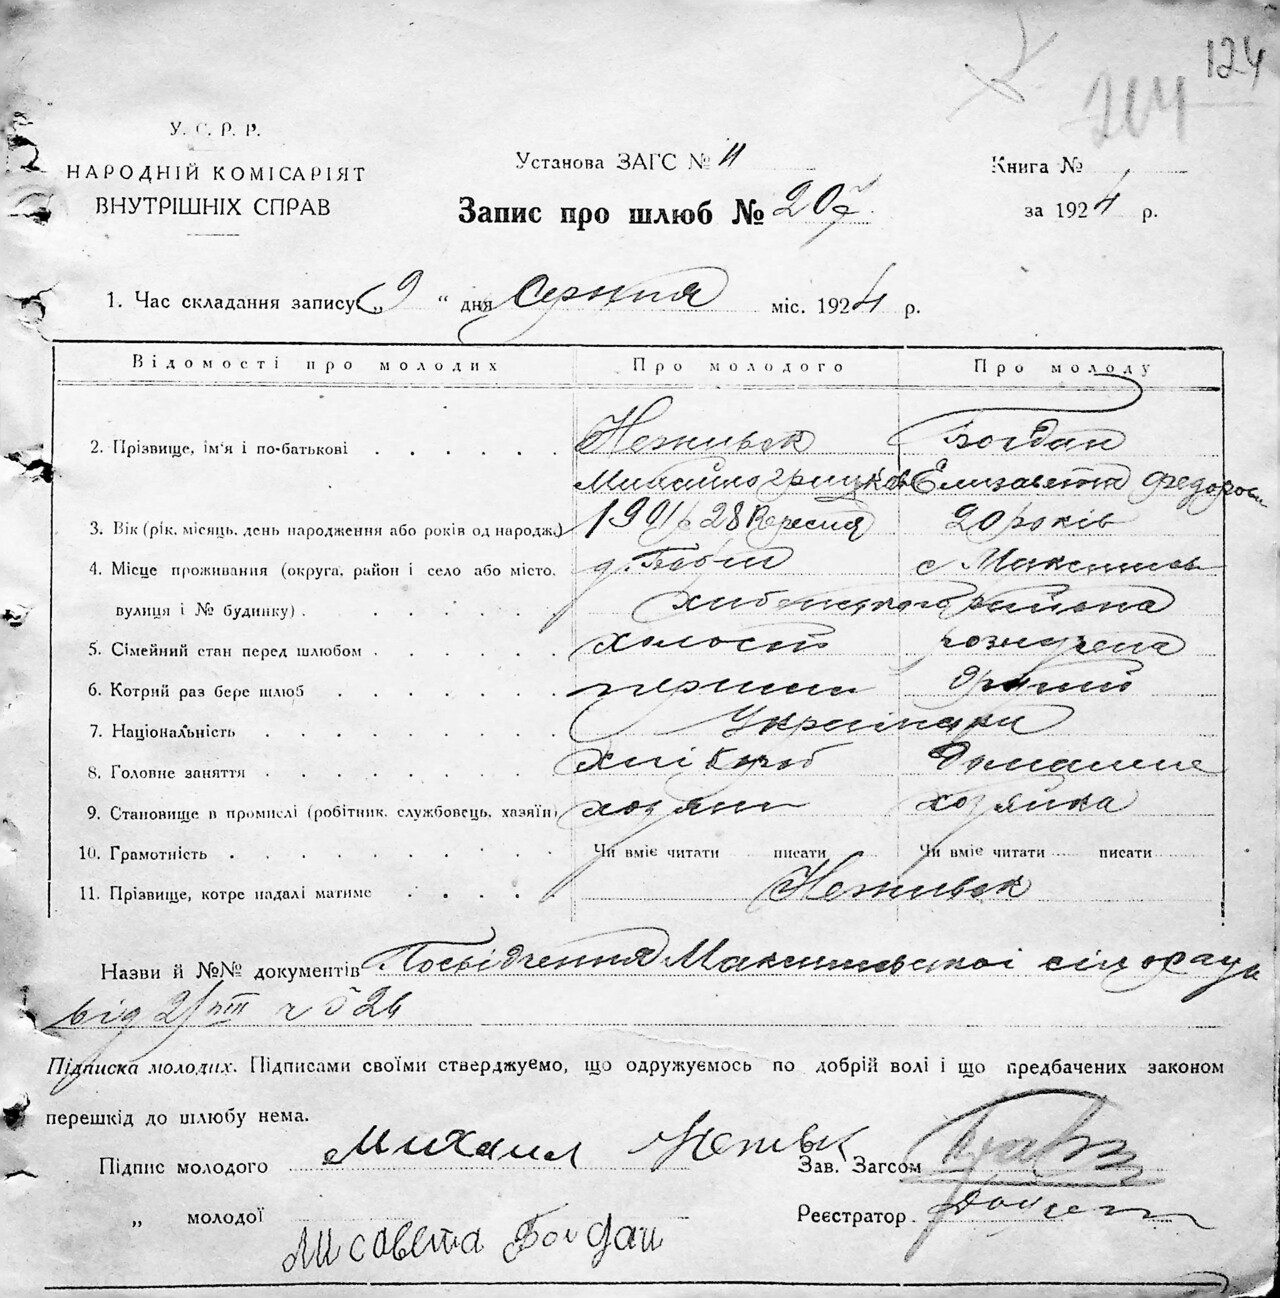 124
204
У. С. Р. Р.
НАРОДНІЙ КОМІСАРІЯТ
ВНУТРІШНІХ СПРАВ
Установа ЗАГС № 11
Книга №
Запис про шлюб № 207
за 1924 р.
1. Час складання запису „9“ дня Серпня міс. 1924 р.
Відомості про молодих Про молодого Про молоду
2. Прізвище, ім'я і по-батькові Неживок Богдан
Михайло Грицков Елизавета Федоровн
3. Вік (рік, місяць, день народження або років од народж.) 28 Вересня 20 років
4. Місце проживання (округа, район і село або місто, с
вулиця і № будинку) района
5. Сімейний стан перед шлюбом холост розведена
6. Котрий раз бере шлюб перший другий
7. Національність Українци
8. Головне заняття хлібороб Домашне
9. Становище в промислі (робітник, службовець, хазяїн) хозяин хозяйка
10. Грамотність Чи вміє читати писати Чи вміє читати писати
11. Прізвище, котре надалі матиме Неживок
Назви й №№ документів Посвідчення сільради
від 2/VIII ч 524
Підписка молодих. Підписами своїми стверджуємо, що одружуємось по добрій волі і що предбачених законом
перешкід до шлюбу нема.
Підпис молодого Михаил Неживк Зав. Загсом
„ молодої Лисовета Богдан Реєстратор